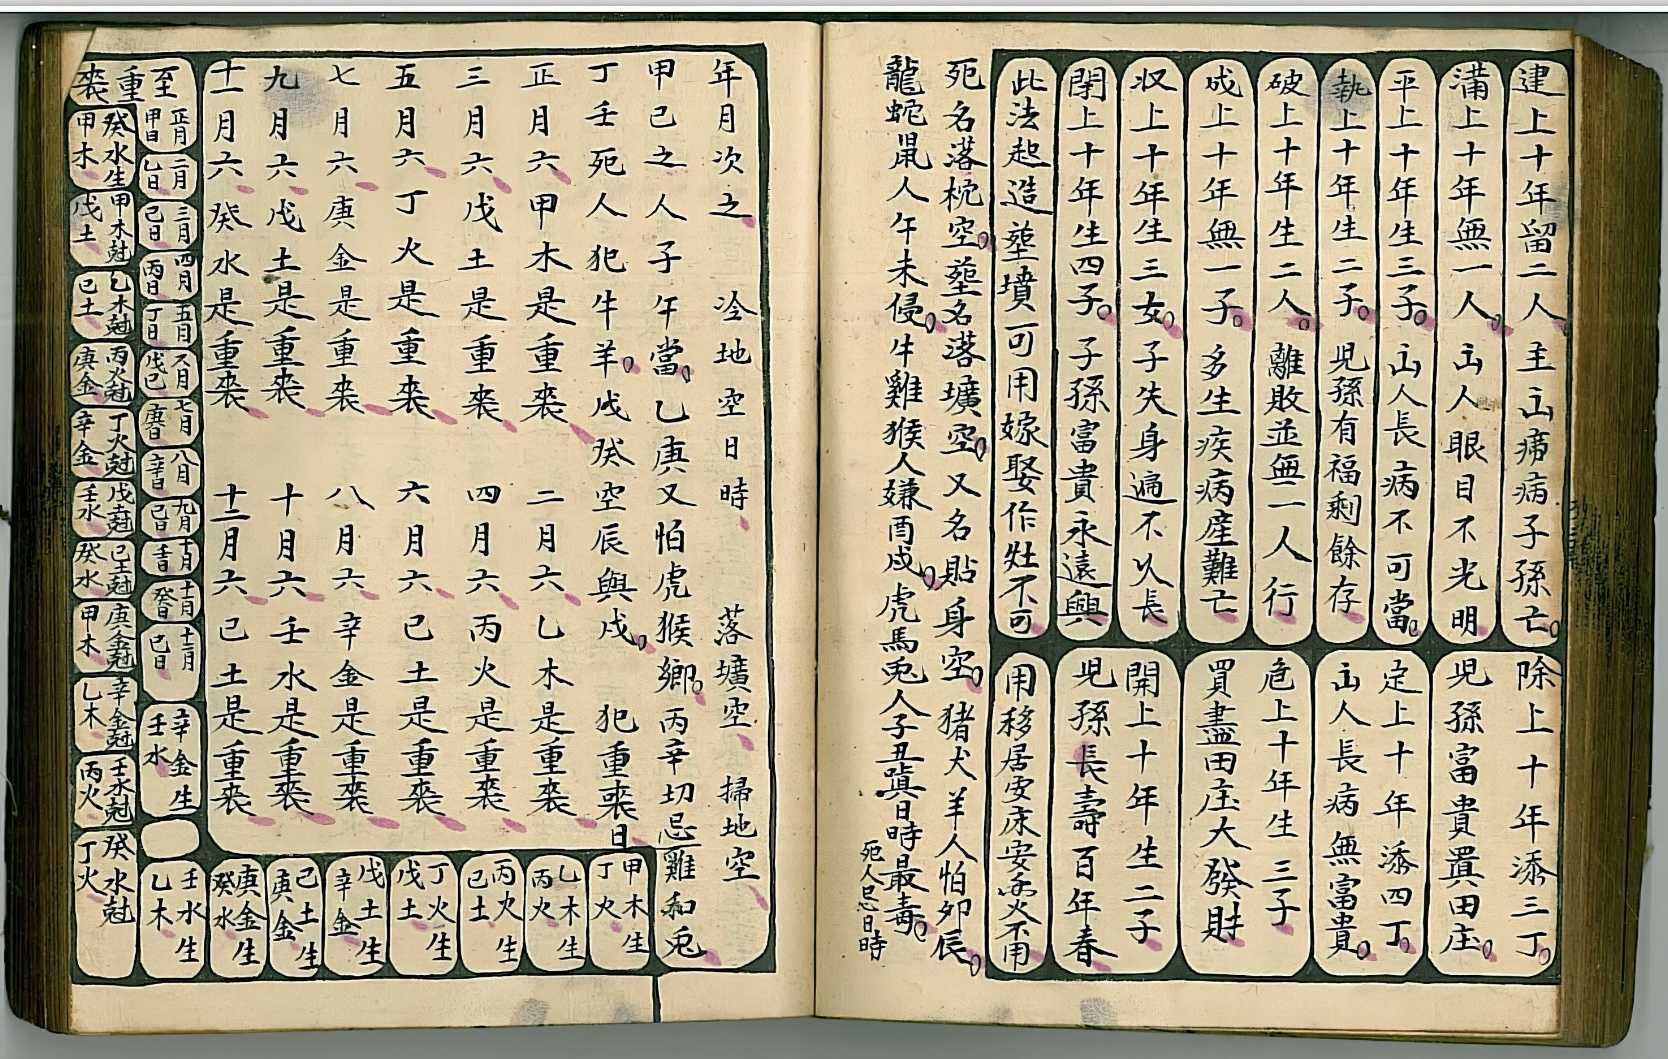 建上十年留二人 主山痨病子孫亡
除上十年添三丁
滿上十年無一人 山人眼目不光明
児孫富貴置田庄
平上十年生三子 山人長病不可當
定上十年添四丁
山人長病無富貴
執上十年生二子 児孫有福剩餘存
破上十年生二人 離敗並無一人行
危上十年生三子
買盡田庄大發財
成上十年無一子 多生疾病産難亡
収上十年生三女 子失身遍不以長
開上十年生二子
児孫長壽百年春
閉上十年生四子 子孫富貴永遠興
此法起造塟墳可用嫁娶作灶不可
用移居安床安
不用
死名落枕空塟名落壙空又名貼身空 猪犬羊人怕夘辰
龍蛇鼠人午未侵牛雞猴人嫌酉戍虎馬兎人子丑寘日時最毒
死人忌日時
年月次之 冷地空日時 落壙空 掃地空
甲己之人子午當乙庚又怕虎猴鄉丙辛切忌雞和兎
丁壬死人犯牛羊戊癸空辰與戍 犯重喪日
正月六甲木是重喪 二月六乙木是重喪
三月六戊土是重喪 四月六丙火是重喪
五月六丁火是重喪 六月六己土是重喪
七月六庚金是重喪 八月六辛金是重喪
九月六戊土是重喪 十月六壬水是重喪
十一月六癸水是重喪 十二月六己土是重喪
甲木生
丁火
乙木生
丙火
丙火生
己土
丁火生
戊土
戊土生
辛金
己土生
庚金
庚金生
癸水
壬水生
乙木
至重喪
正月
甲日
二月
乙日
三月
己日
四月
丙日
五月
丁日
六月
戊己
七月
庚日
八月
辛日
九月
己日
十月
壬日
十一月
癸日
十二月
己日
辛金生
壬水
癸水生
甲木
甲木尅
戊土
乙木尅
己土
丙火尅
庚金
丁火尅
辛金
戊土尅
壬水
己土尅
癸水
庚金尅
甲木
辛金尅
乙木
壬水尅
丙火
癸水尅
丁火